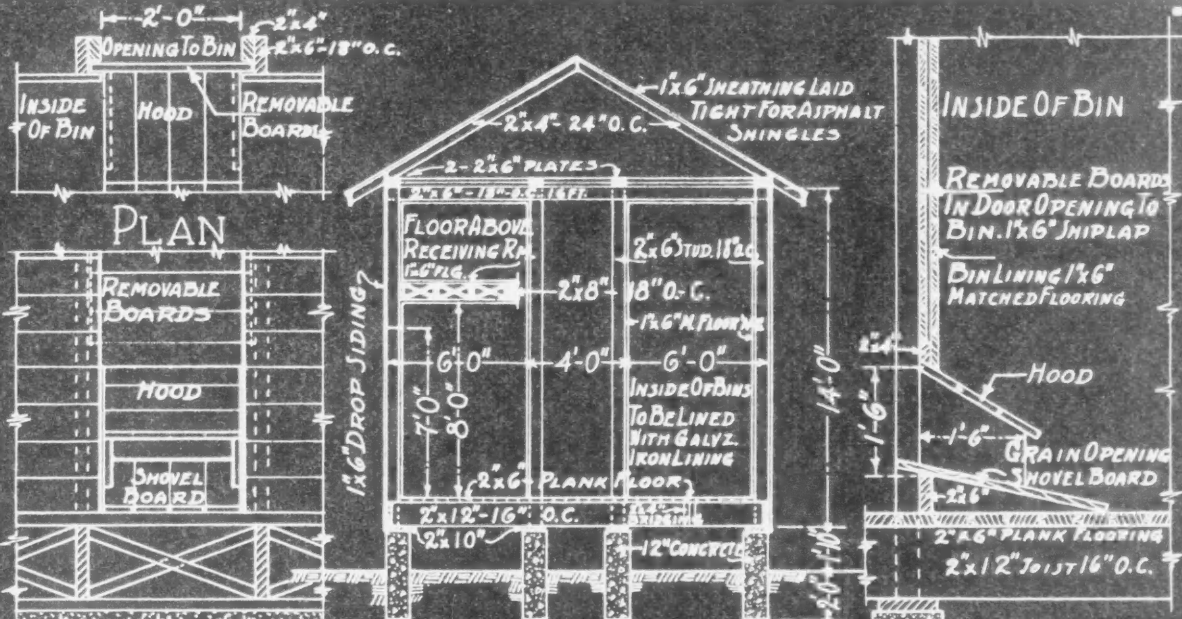 2'-0"
2"x4"
2"x6"-18" O.C.
OPENING TO BIN
INSIDE
OF BIN
HOOD
REMOVABLE
BOARDS
PLAN
REMOVABLE
BOARDS
HOOD
SHOVEL
BOARD
1"x6" SHEATHING LAID
TIGHT FOR ASPHALT
SHINGLES
2"x4"-24" O.C.
2-2"x6" PLATES
2"x6"-18"-O.C.-16FT.
FLOOR ABOVE
RECEIVING RM.
1"x6" FLG.
2"x6" STUD. 18" O.C.
2"x8"-18" O.-C.
1"x6" M. FLOOR'NG
6'-0"
4'-0"
6'-0"
1"x6" DROP SIDING
7'-0"
8'-0"
INSIDE OF BINS
TO BE LINED
WITH GALVZ.
IRON LINING
14'-0"
2"x6" PLANK FLOOR
2"x12"-16" O.C.
BRIDGING
2"x10"
12" CONCRETE
2'-0"
1'-0"
INSIDE OF BIN
REMOVABLE BOARDS
IN DOOR OPENING TO
BIN. 1"x6" SHIPLAP
BIN LINING 1"x6"
MATCHED FLOORING
2"x4"
HOOD
1'-6"
1'-6"
GRAIN OPENING
SHOVEL BOARD
2"x6"
2"x6" PLANK FLOORING
2"x12" JOIST 16" O.C.